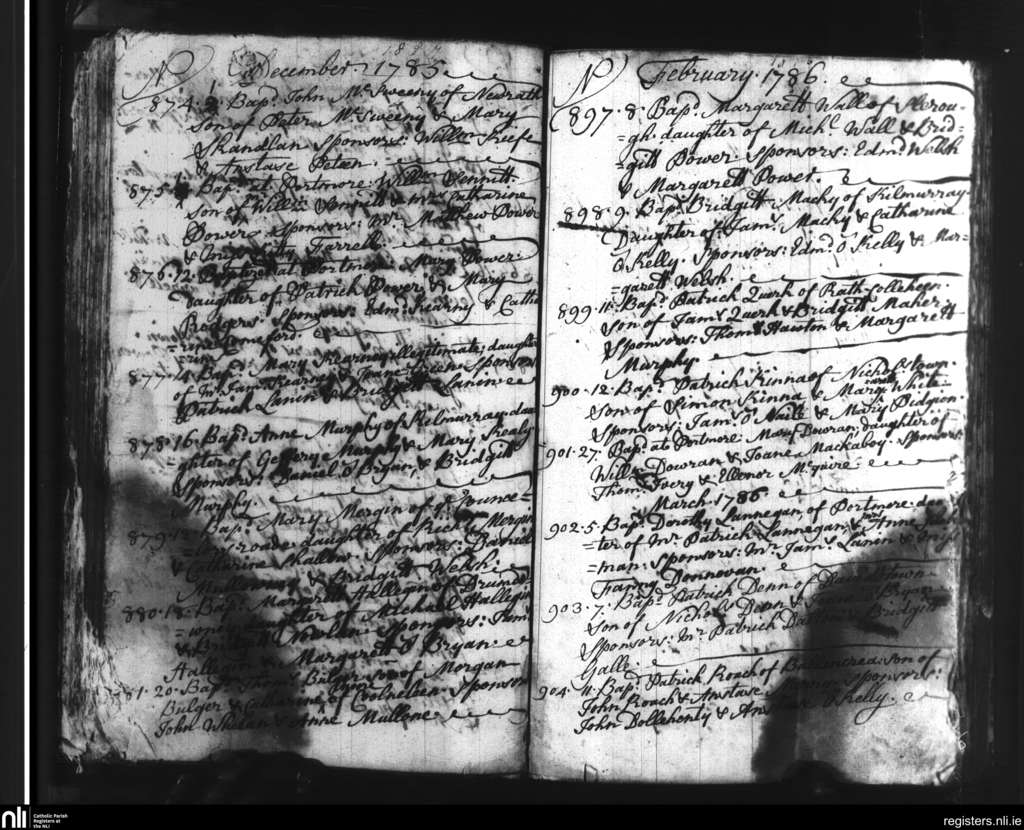 No December 1785
874. 2. Bapd. John McSweeny of Newrath
son of Peter McSweeny & Mary
Skandlan Sponsors: Willm Keefe
& Anstase Peteen.
875. Bapd. at Portmore: Willm Sinnitt
son of Willm Sinnitt & Mrs Catharine
Power Sponsors: Mr Matthew Power
& Miss Farrell.
876. 12. Baptized at Portmore Mary Power
Daughter of Patrick Power & Mary
Rodgers Sponsors: Edmd. Kearny & Cathe
=rine Comeford
877. 14. Bapd. Mary Kearney illegitimate; daughter
of Mr. Jams. Kearny & Joane Keene Sponsors
Patrick Lanin & Bridgett Lanin
878. 16. Bapd. Anne Murphy of Kilmurray dau
=ghter of Geffery Murphy & Mary Shealy
Sponsors: Daniel O'Bryan & Bridgitt
Murphy.
879. Bapd. Mary Mergin of Pounce=
road: daughter of Richd. Mergin
& Catharine Shallow: Sponsors: Daniel
Mullowny & Bridgitt Welsh.
880. 18. Bapd. Margarett Hallegin of Drumdo
=wny daughter of Michael Hallegin
& Newlan Sponsors: Jams.
Hallegin & Margarett O'Bryan
881. 20. Bapd. Bulger son of Morgan
Bulger & Catharine of Sponsors
John Whelan & Anne Mullone
No February 1786.
897. 8. Bapd. Margarett Wall of Slerou-
=gh. daughter of Michl. Wall & Brid=
=gitt Power. Sponsors: Edmd. Welsh
& Margarett Power.
898. 9. Bapd. Bridgitt Macky of Kilmurray
Daughter of: Jams. Macky & Catharine
O'Kelly. Sponsors: Edmd. O'Kelly & Mar=
=garett Welsh
899. 11. Bapd. Patrick Quirk of Rath-Colleheen.
son of Jams. Quirk & Bridgitt Maher:
Sponsors: Thoms. Hawton & Margarett
Murphy
900. 12. Bapd. Patrick Kinna of Nicholstown.
son of Simon Kinna & Mary White
Sponsors: Jams. O'Neill & Mary Pidgion
901. 27. Bapd. at Portmore: Mary Dowran, daughter of
Willm Dowran & Joane Mackaboy. Sponsors
Thoms. Ivery & Ellenor McGuire
March 1786
902. 5. Bapd. Dorothy Lannegan of Portmore: dau
=ter of Mr. Patrick Lannegan, & Mrs Anne
=man. Sponsors: Mr. Jams. Lanin & Miss
Fanny Donnovan.
903. 7. Bapd. Patrick Denn of
son of Nichols. Denn & Bryan
Sponsors: Mr. Patrick & Bridgitt
Galle.
904. 11. Bapd. Patrick Roach of Ballincrea. son of
John Roach & Anstase Sponsors:
John Bollehenty & Anstase O'Kelly.
nli
Catholic Parish
Registers at
the NLI
registers.nli.ie